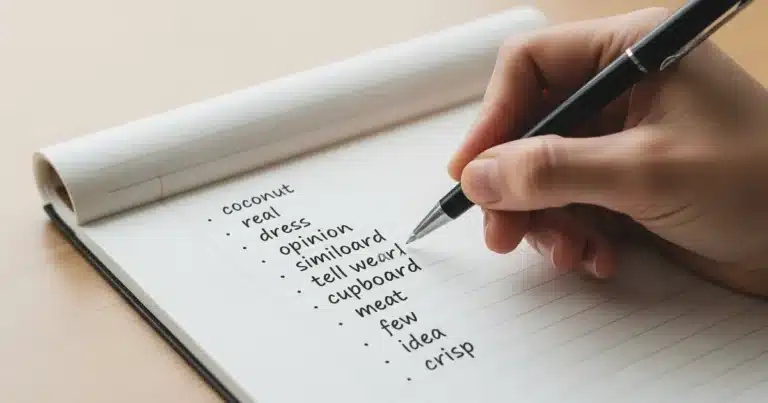 · coconut
· real
· dress
· opinion
· similoard
· tell wearl
· cupboard
· meat
· few
· idea
· crisp